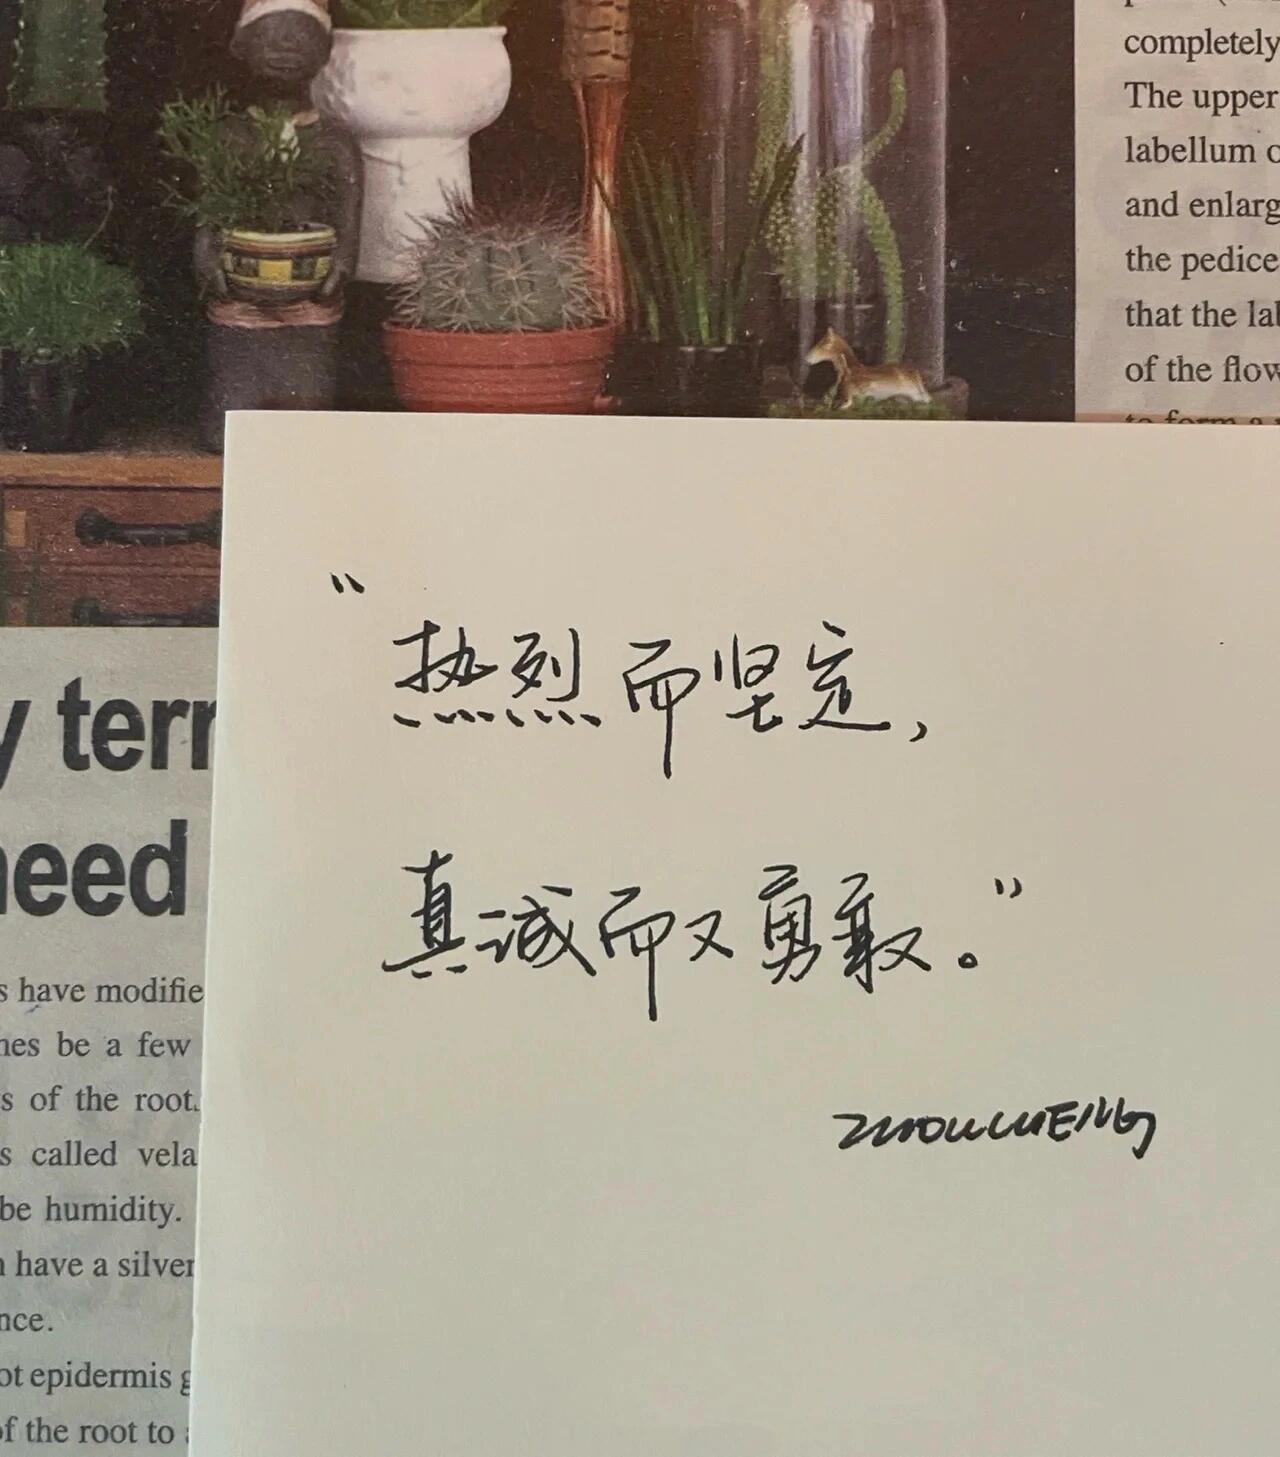 completely
The upper
labellum
and enlarg
the pedice
that the lab
of the flow
to form a
y terr
need
s have modifie
nes be a few
s of the root.
s called vela
be humidity.
n have a silver
nce.
ot epidermis g
of the root to
“热烈而坚定,
真诚而又勇敢。”